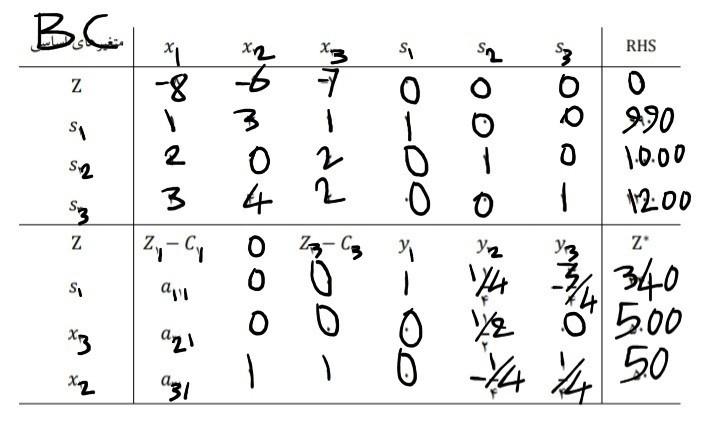 BC متغیرهای اساسی x1 x2 x3 s1 s2 s3 RHS
Z -8 -6 -7 0 0 0 0
s1 1 3 1 1 0 0 990
s2 2 0 2 0 1 0 1000
s3 3 4 2 0 0 1 1200
Z Z1 - C1 0 Z3 - C3 y1 y2 y3 Z*
s1 a11 0 0 1 1/4 -3/4 340
x3 a21 0 0 0 1/2 0 500
x2 a31 1 1 0 -1/4 1/4 50